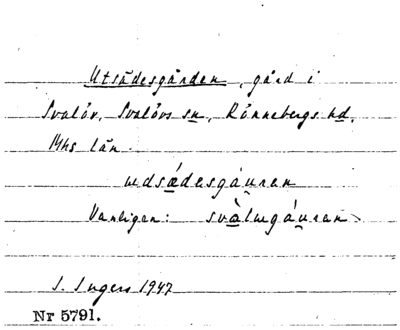 Utsädesgården, gård i
Svalöv, Svalövs sn, Rönnebergs hd,
Mhs län.
udsǽdesgáu̯ren
Vanligen: svàlmgáu̯ren
I. Ingers 1947
Nr 5791.